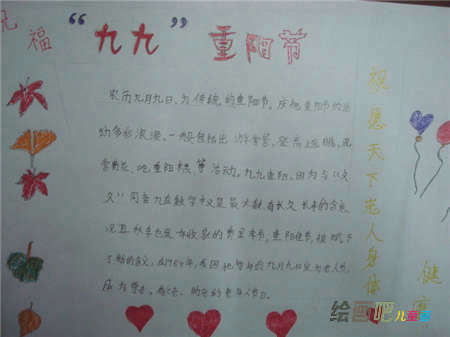 祝福
“九九”重阳节
农历九月九日,为传统的重阳节。庆祝重阳节的活
动多彩浪漫,一般包括出游赏景、登高远眺、观
赏菊花、吃重阳糕等活动。九九重阳,因为与“久
久”同音九在数字中又是最大数,有长久长寿的含意,
况且秋季也是一年收获的黄金季节,重阳佳节,
了新的含义,在1989年,我国把每年的九月九日定为老人节,
成为尊老、敬老、助老的老年人节日。
祝愿天下老人身体
健康
绘画吧儿童画